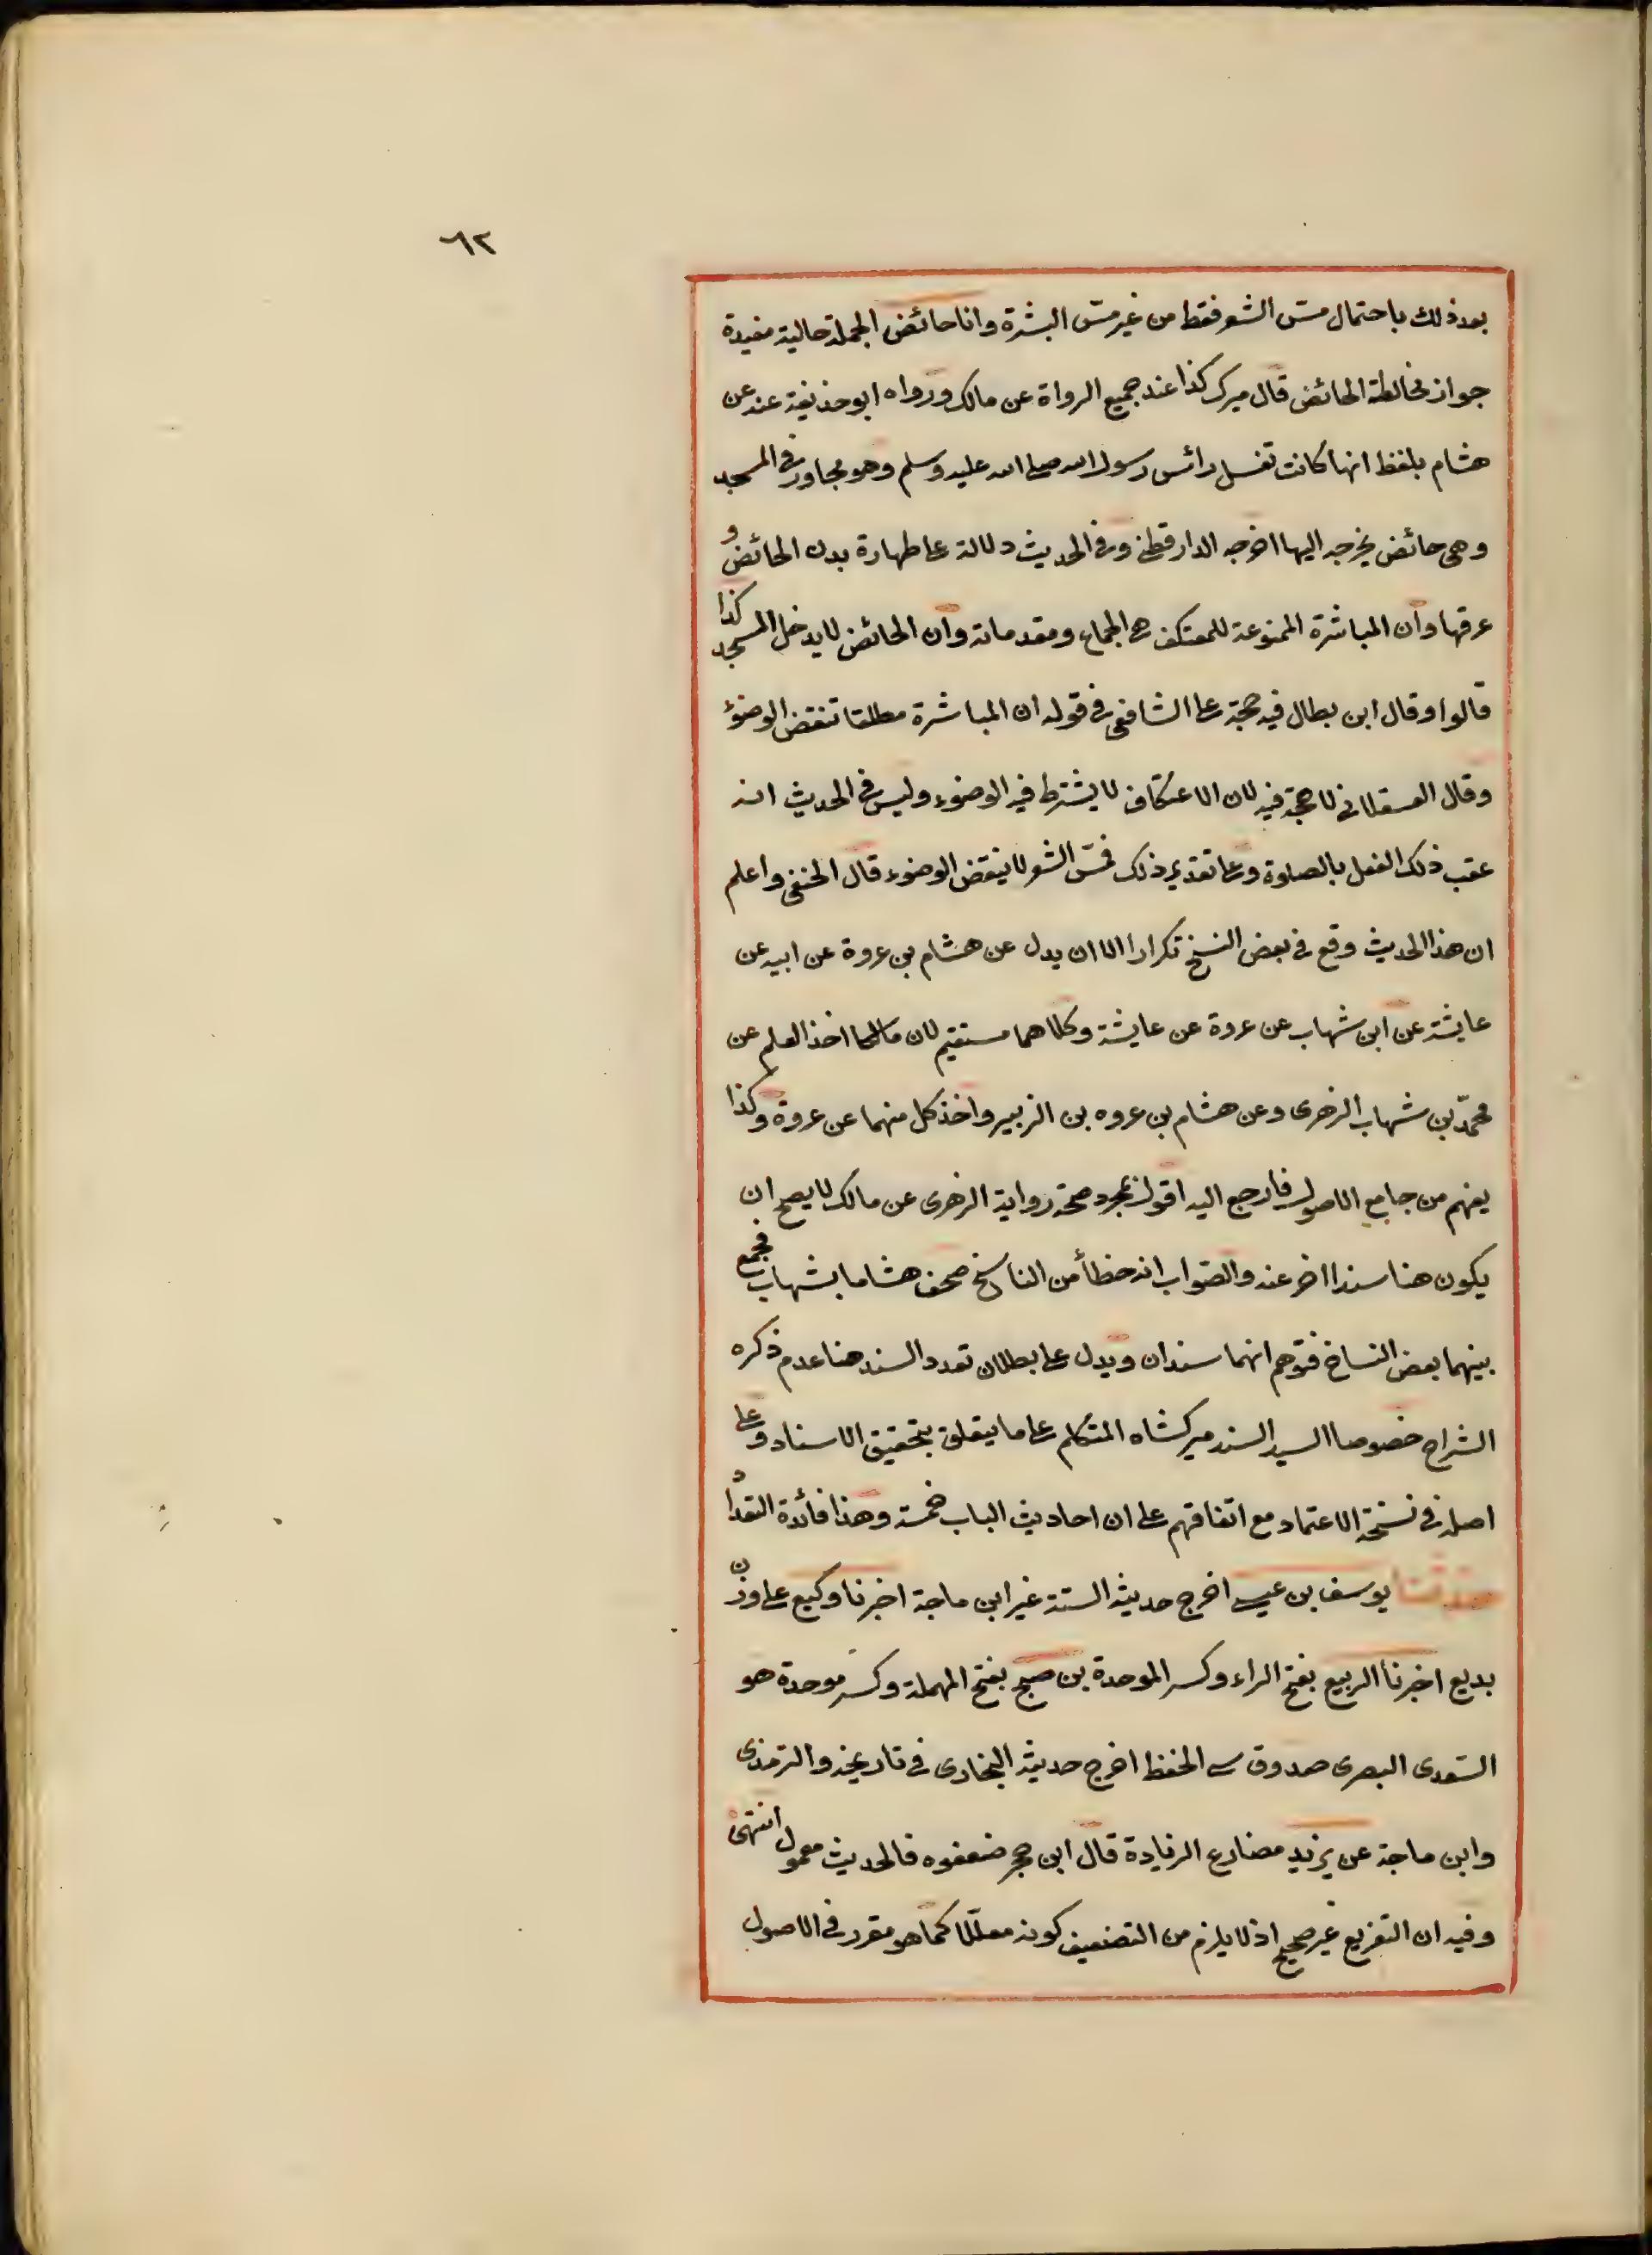 ٦٢
بعد ذلك باحتمال مسّ الشعر فقط من غير مسّ البشرة وانا حائض الجملة حالية مفيدة
جواز مخالطة الحائض قال ميرك كذا عند جميع الرواة عن مالك ورواه ابو حذيفة عنه عن
هشام بلفظ انها كانت تغسل رائس رسول الله صلى الله عليه وسلم وهو مجاور في المسجد
وهي حائض يخرجه اليها اخرجه الدارقطني وفي الحديث دلالة على طهارة بدن الحائض و
عرقها وان المباشرة الممنوعة للمعتكف هي الجماع ومقدماته وان الحائض لا يدخل المسجد كذا
قالوا وقال ابن بطال فيه حجة على الشافعي في قوله ان المباشرة مطلقا تنقض الوضوء
وقال العسقلاني لا حجة فيه لان الاعتكاف لا يشترط فيه الوضوء وليس في الحديث انه
عقب ذلك الفعل بالصلوة وعلى تقدير ذلك فمسّ الشعر لا ينقض الوضوء قال الحنفي واعلم
ان هذا الحديث وقع في بعض النسخ تكرارا الا ان بدل عن هشام بن عروة عن ابيه عن
عايشة عن ابن شهاب عن عروة عن عايشة وكلاهما مستقيم لان مالكا اخذ العلم عن
محمّد بن شهاب الزهرى وعن هشام بن عروه بن الزبير واخذ كل منهما عن عروة وكذا
يفهم من جامع الاصول فارجع اليه اقول مجرد صحة رواية الزهرى عن مالك لا يصح ان
يكون هنا سندا اخر عنه والصّواب انه خطأ من الناسخ صحف هشاما بشهاب فجمع
بينهما بعض النساخ فتوهم انهما سندان ويدل على بطلان تعدد السند هنا عدم ذكره
الشراح خصوصا السيد السند ميركشاه المتكلم على ما يتعلق بتحقيق الاسناد وعلى
اصله في نسخة الاعتماد مع اتفاقهم على ان احاديث الباب خمسة وهذا فائدة التعداد
حدثنا يوسف بن عيسى اخرج حديثه الستة غير ابن ماجة اخبرنا وكيع على وزن
بديع اخبرنا الربيع بفتح الراء وكسر الموحدة بن صبيح بفتح المهملة وكسر موحدة هو
السّعدى البصرى صدوق سي الحفظ اخرج حديثه البخارى في تاريخه والترمذى
وابن ماجة عن يزيد مضارع الزيادة قال ابن حجر ضعفوه فالحديث معمول انتهى
وفيه ان التفريع غير صحيح اذ لا يلزم من التضعيف كونه معلّلا كما هو مقرر في الاصول